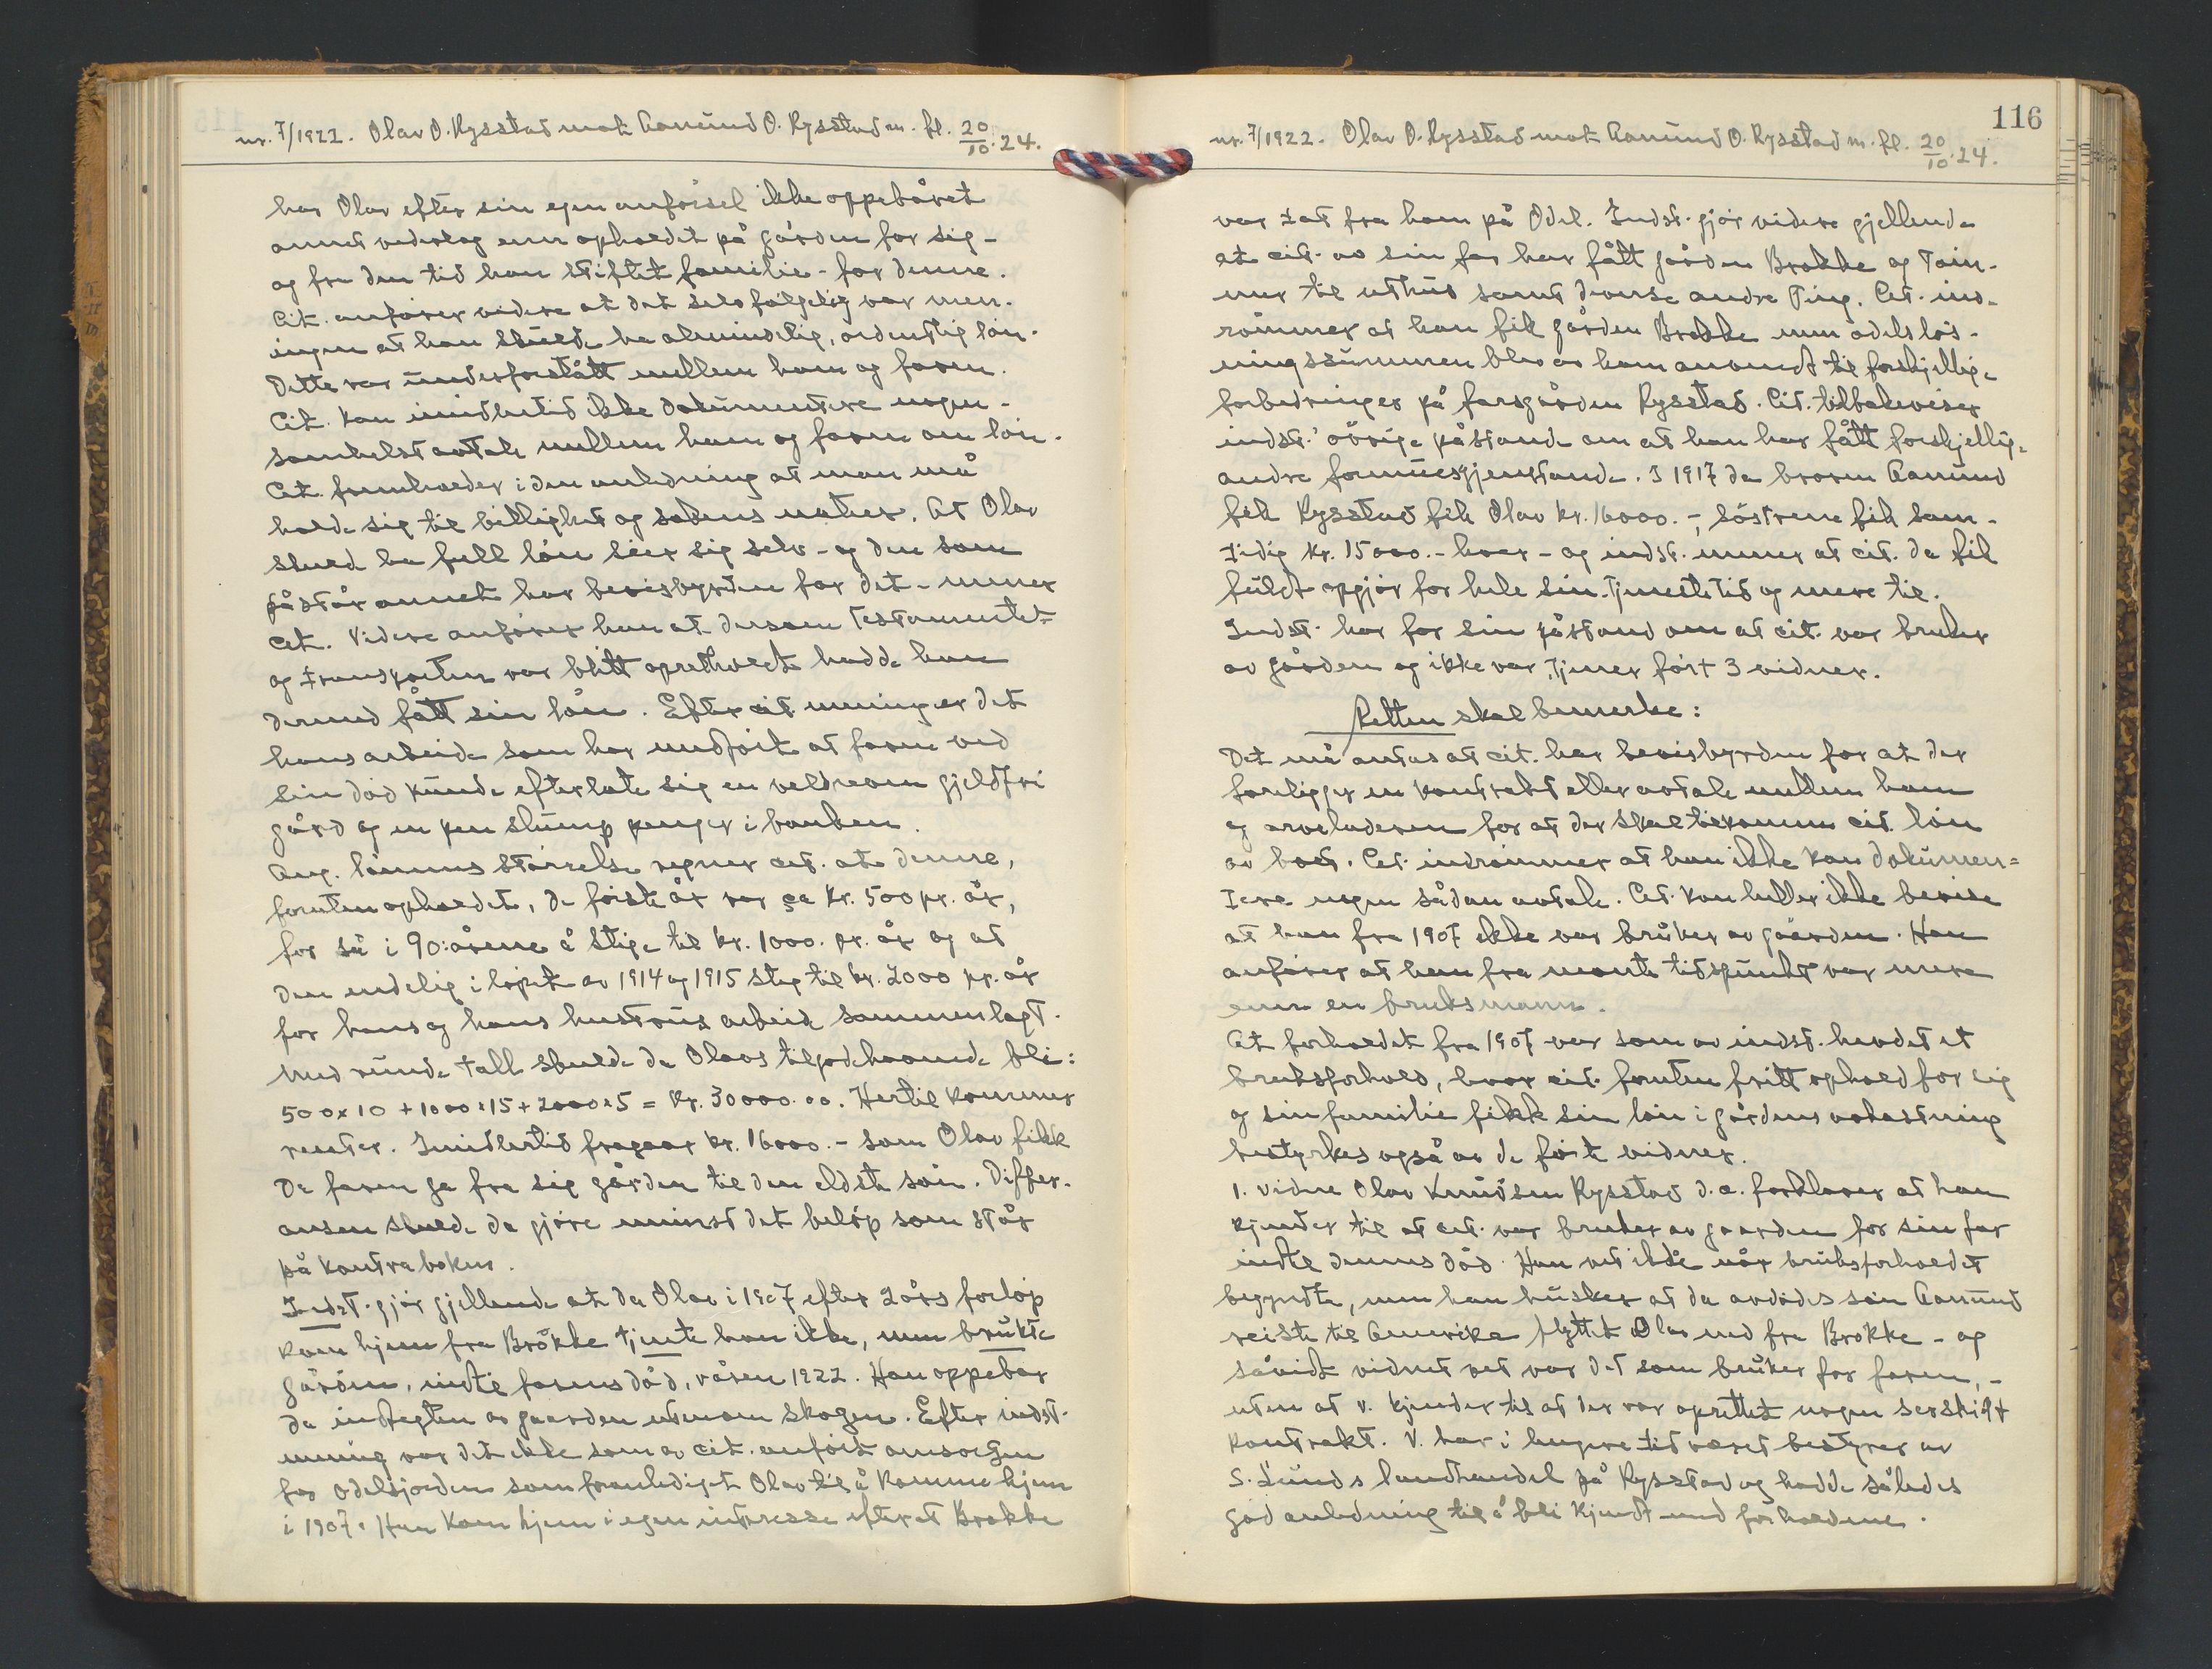 nr. 7/1922. Olav O. Rysstad mot Aanund O. Rysstad m. fl. 20/10.24.
har Olav efter sin egen anförsel ikke oppebåret
annet vederlag enn opholdet på gården for sig -
og fra den tid han stiftet familie - for denne.
Cit. anförer videre at det selvfölgelig var men-
ingen at han skulde ha almindelig, ordentlig lön.
Dette var underforstått mellem ham og faren.
Cit. kan imidlertid ikke dokumentere nogen-
somhelst avtale mellem ham og faren om lön.
Cit. fremholder i den anledning at man må
holde sig til billighet og sakens natur. At Olav
skuld ha full lön sier sig selv - og den som
påstår annet har bevisbyrden for det - mener
cit. Videre anförer han at dersom testamentet
og transporten var blitt oprettholdt hadde han
dermed fått sin lön. Efter cit. mening er det
hans arbeide som har medfört at faren ved
sin död kunde efterlate sig en veldreven gjeldfri
gård og en pen slump penger i banken.
Ang. lönnens störrelse regner cit. at denne,
foruten opholdet, de förste år var ca kr. 500 pr. år,
for så i 90-årene å stige til kr. 1000. pr. år og at
den endelig i löpet av 1914 og 1915 steg til kr. 2000 pr. år
for hans og hans hustrus arbeide sammenlagt.
Med runde tall skulde da Olavs tilgodehavende bli:
500 x 10 + 1000 x 15 + 2000 x 5 = Kr. 30000.00. Hertil kommer
renter. Imidlertid fragaar kr. 16000.- som Olav fikk
da faren ga fra sig gården til den eldste sön. Differ-
ansen skulde da gjöre minst det belöp som står
på kontraboken.
Indst. gjör gjellende at da Olav i 1907 efter 2 års forlöp
kom hjem fra Brökke tjente han ikke, men brukte
gården, indtil farens död, våren 1922. Han oppebar
da indtegten av gaarden utenom skogen. Efter indst.
mening var det ikke som av cit. anfört omsorgen
for odelsjorden som foranlediget Olav til å komme hjem
i 1907. Han kom hjem i egen interesse efter at Brokke
116
nr. 7/1922. Olav O. Rysstad mot Aanund O. Rysstad m. fl. 20/10.24.
var tat fra ham på Odel. Indst. gjör videre gjellende
at cit. av sin far har fått gården Brokke og Töm-
mer til uthus samt diverse andre Ting. Cit. ind-
römmer at han fik gården Brokke men odelslös-
ningssummen blev av ham anvendt til forskjellige
forbedringer på farsgården Rysstad. Cit. tilbakeviser
indst.' övrige påstande om at han har fått forskjellige
andre formuesgjenstande. I 1917 da broren Aanund
fik Rysstad fik Olav kr. 16000.-, söstrene fik sam-
tidig kr. 15000.- hver - og indst. mener at cit. da fik
fuldt opgjör for hele sin tjenestetid og mere til.
Indst. har for sin påstand om at cit. var bruker
av gården og ikke var tjener fört 3 vidner.
Retten skal bemerke:
Det må antas at cit. har bevisbyrden for at der
foreligger en kontrakt eller avtale mellem ham
og arveladeren for at der skal tilkomme cit. lön
av boet. Cit. indrömmer at han ikke kan dokumen=
tere nogen sådan avtale. Cit. kan heller ikke bevise
at han fra 1907 ikke var bruker av gaarden. Han
anförer at han fra nevnte tidspunkt var mere
enn en bruksmann.
At forholdet fra 1907 var som av indst. hevdet et
bruksforhold, hvor cit. foruten fritt ophold for sig
og sin familie fikk sin lön i gårdens avkastning
bestyrkes også av de förte vidner.
1. vidne Olav Knudsen Rysstad d.e. forklarer at han
kjender til at cit. var bruker av gaarden for sin far
indtil dennes död. Han vet ikke når bruksforholdet
begyndte, men han husker at da avdödes sön Aanund
reiste til Amerika flyttet Olav ned fra Brokke - og
såvidt vidnet vet var det som bruker for faren, -
uten at v. kjender til at der var oprettet nogen særskilt
kontrakt. V. har i lengere tid været bestyrer av
S. Lunds landhandel på Rysstad og hadde således
god anledning til å bli kjendt med forholdene.